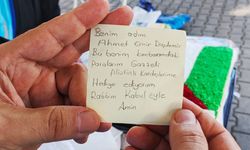 Benim adım
Ahmet Emir Daşdemir
Bu benim kumbaramdaki
Paralarım Gazzeli
Kardeşlerime
Hediye ediyorum
Rabbim Kabul eyle
Amin